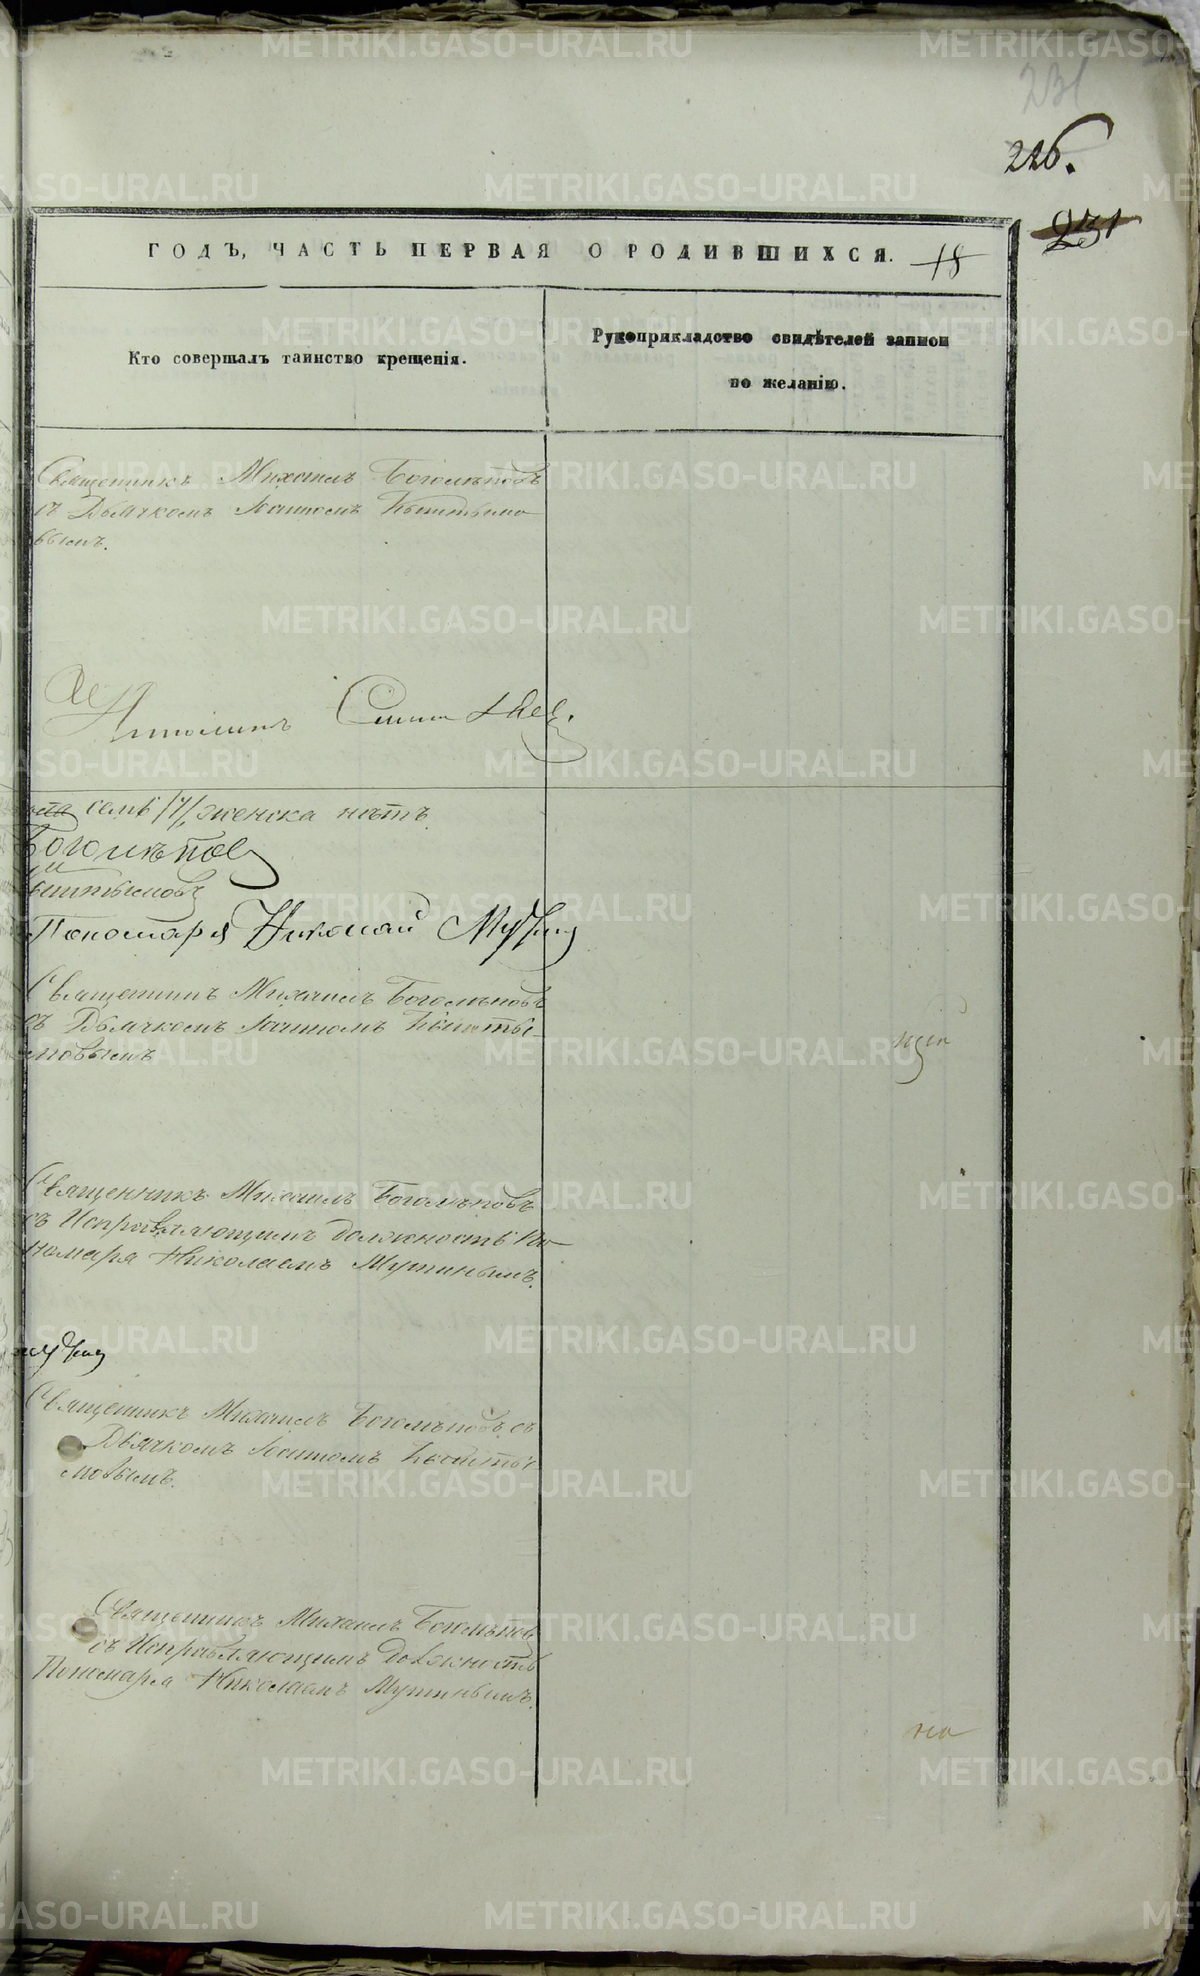 231
226.
231
ГОДЪ, ЧАСТЬ ПЕРВАЯ О РОДИВШИХСЯ. 18
Кто совершалъ таинство крещенія.
Рукоприкладство свидѣтелей записи
по желанію.
Священникъ Михаилъ Боголѣповъ
съ Дьячкомъ Іоанномъ Кыштымо
вымъ.
семь /7/ женска нѣтъ
Боголѣповъ
Кыштымовъ
Пономаря Николай Мутинъ
Священникъ Михаилъ Боголѣповъ
съ Дьячкомъ Іоанномъ Кышты-
мовымъ
Священникъ Михаилъ Боголѣповъ
съ Исправляющимъ должность По-
номаря Николаемъ Мутинымъ.
Мутинъ
Священникъ Михаилъ Боголѣповъ съ
Дьячкомъ Іоанномъ Кышты
мовымъ.
Священникъ Михаилъ Боголѣповъ
съ Исправляющимъ Должность
Пономаря Николаемъ Мутинымъ.
METRIKI.GASO-URAL.RU